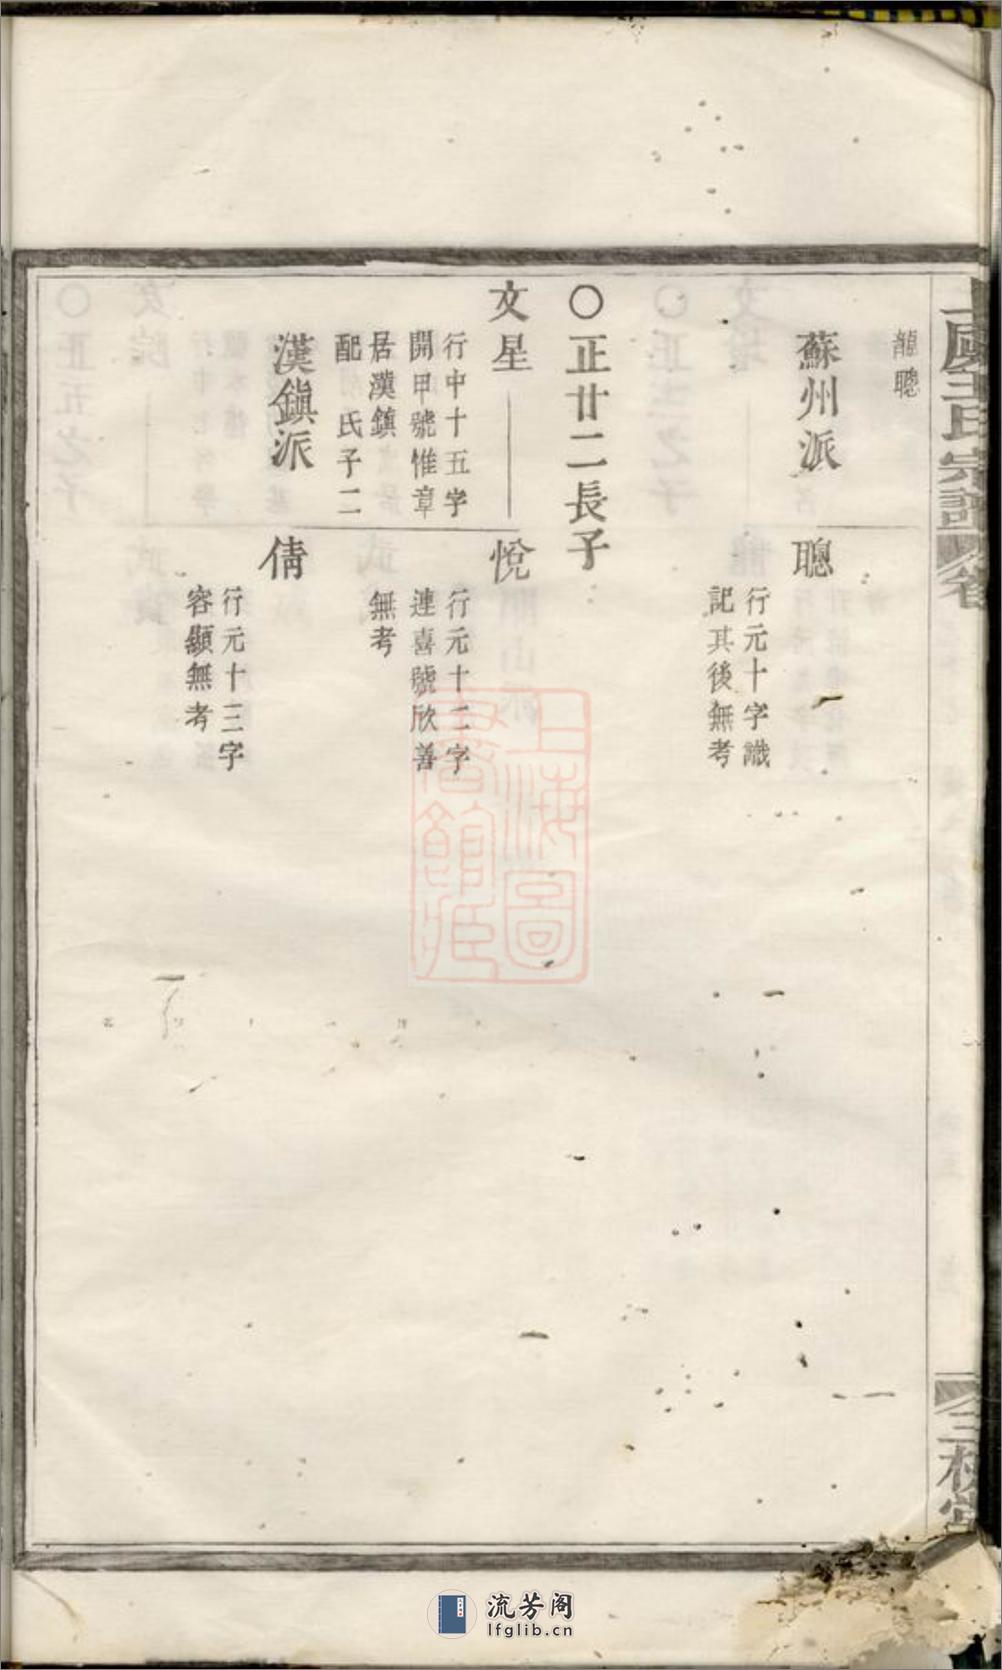 龍聰
蘇州派
聰
行元十字識
記其後無考
〇正廿二長子
文星
悅
行中十五字
開甲號惟章
居漢鎮
配 氏子二
行元十二字
連喜號欣善
無考
漢鎮派
倩
行元十三字
容顯無考
王氏宗譜
卷
三槐堂
上海圖書館藏
流芳阁
lfglib.cn